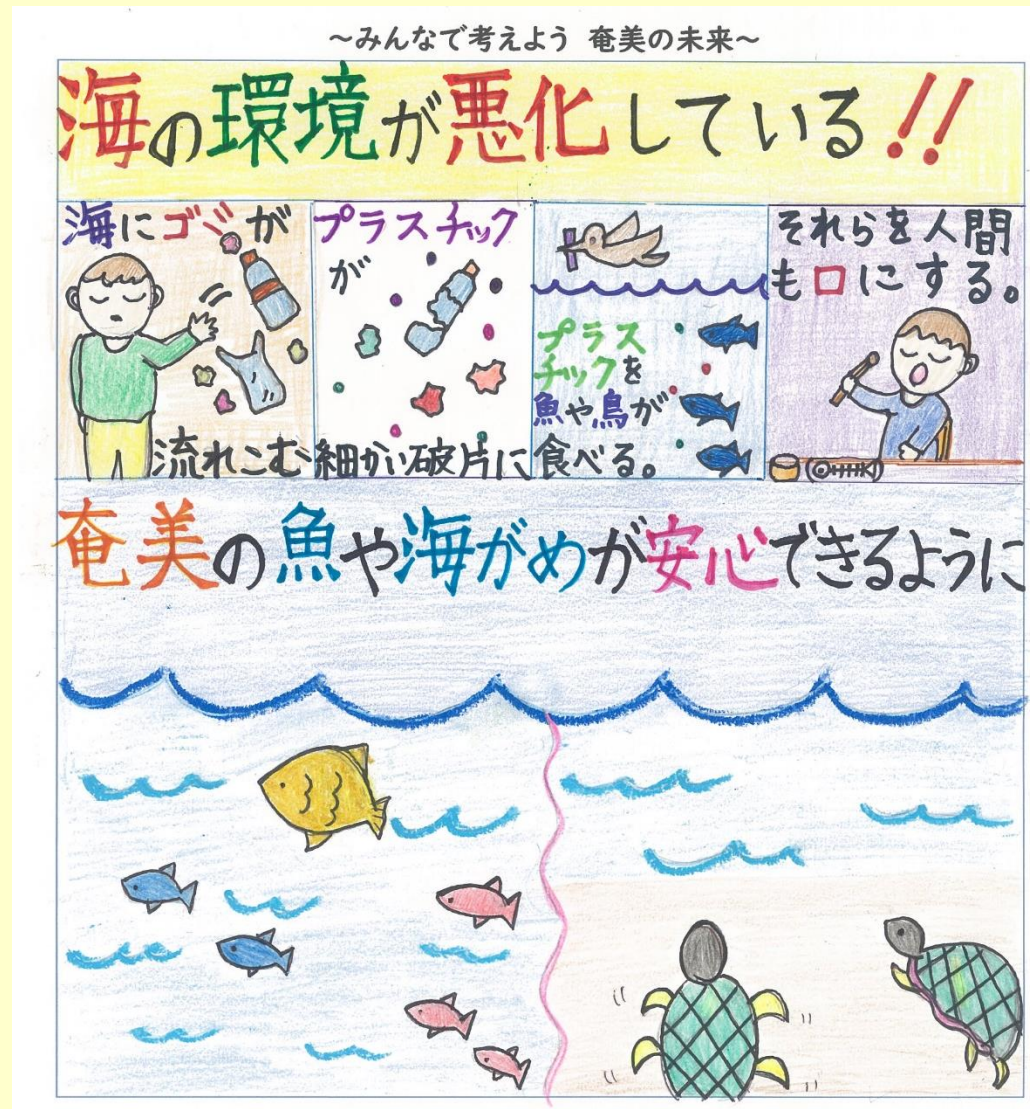 ～みんなで考えよう 奄美の未来～
海の環境が悪化している!!
海にゴミが
流れこむ
プラスチック
が
細かい破片に
プラス
チックを
魚や鳥が
食べる。
それらを人間
も口にする。
奄美の魚や海がめが安心できるように